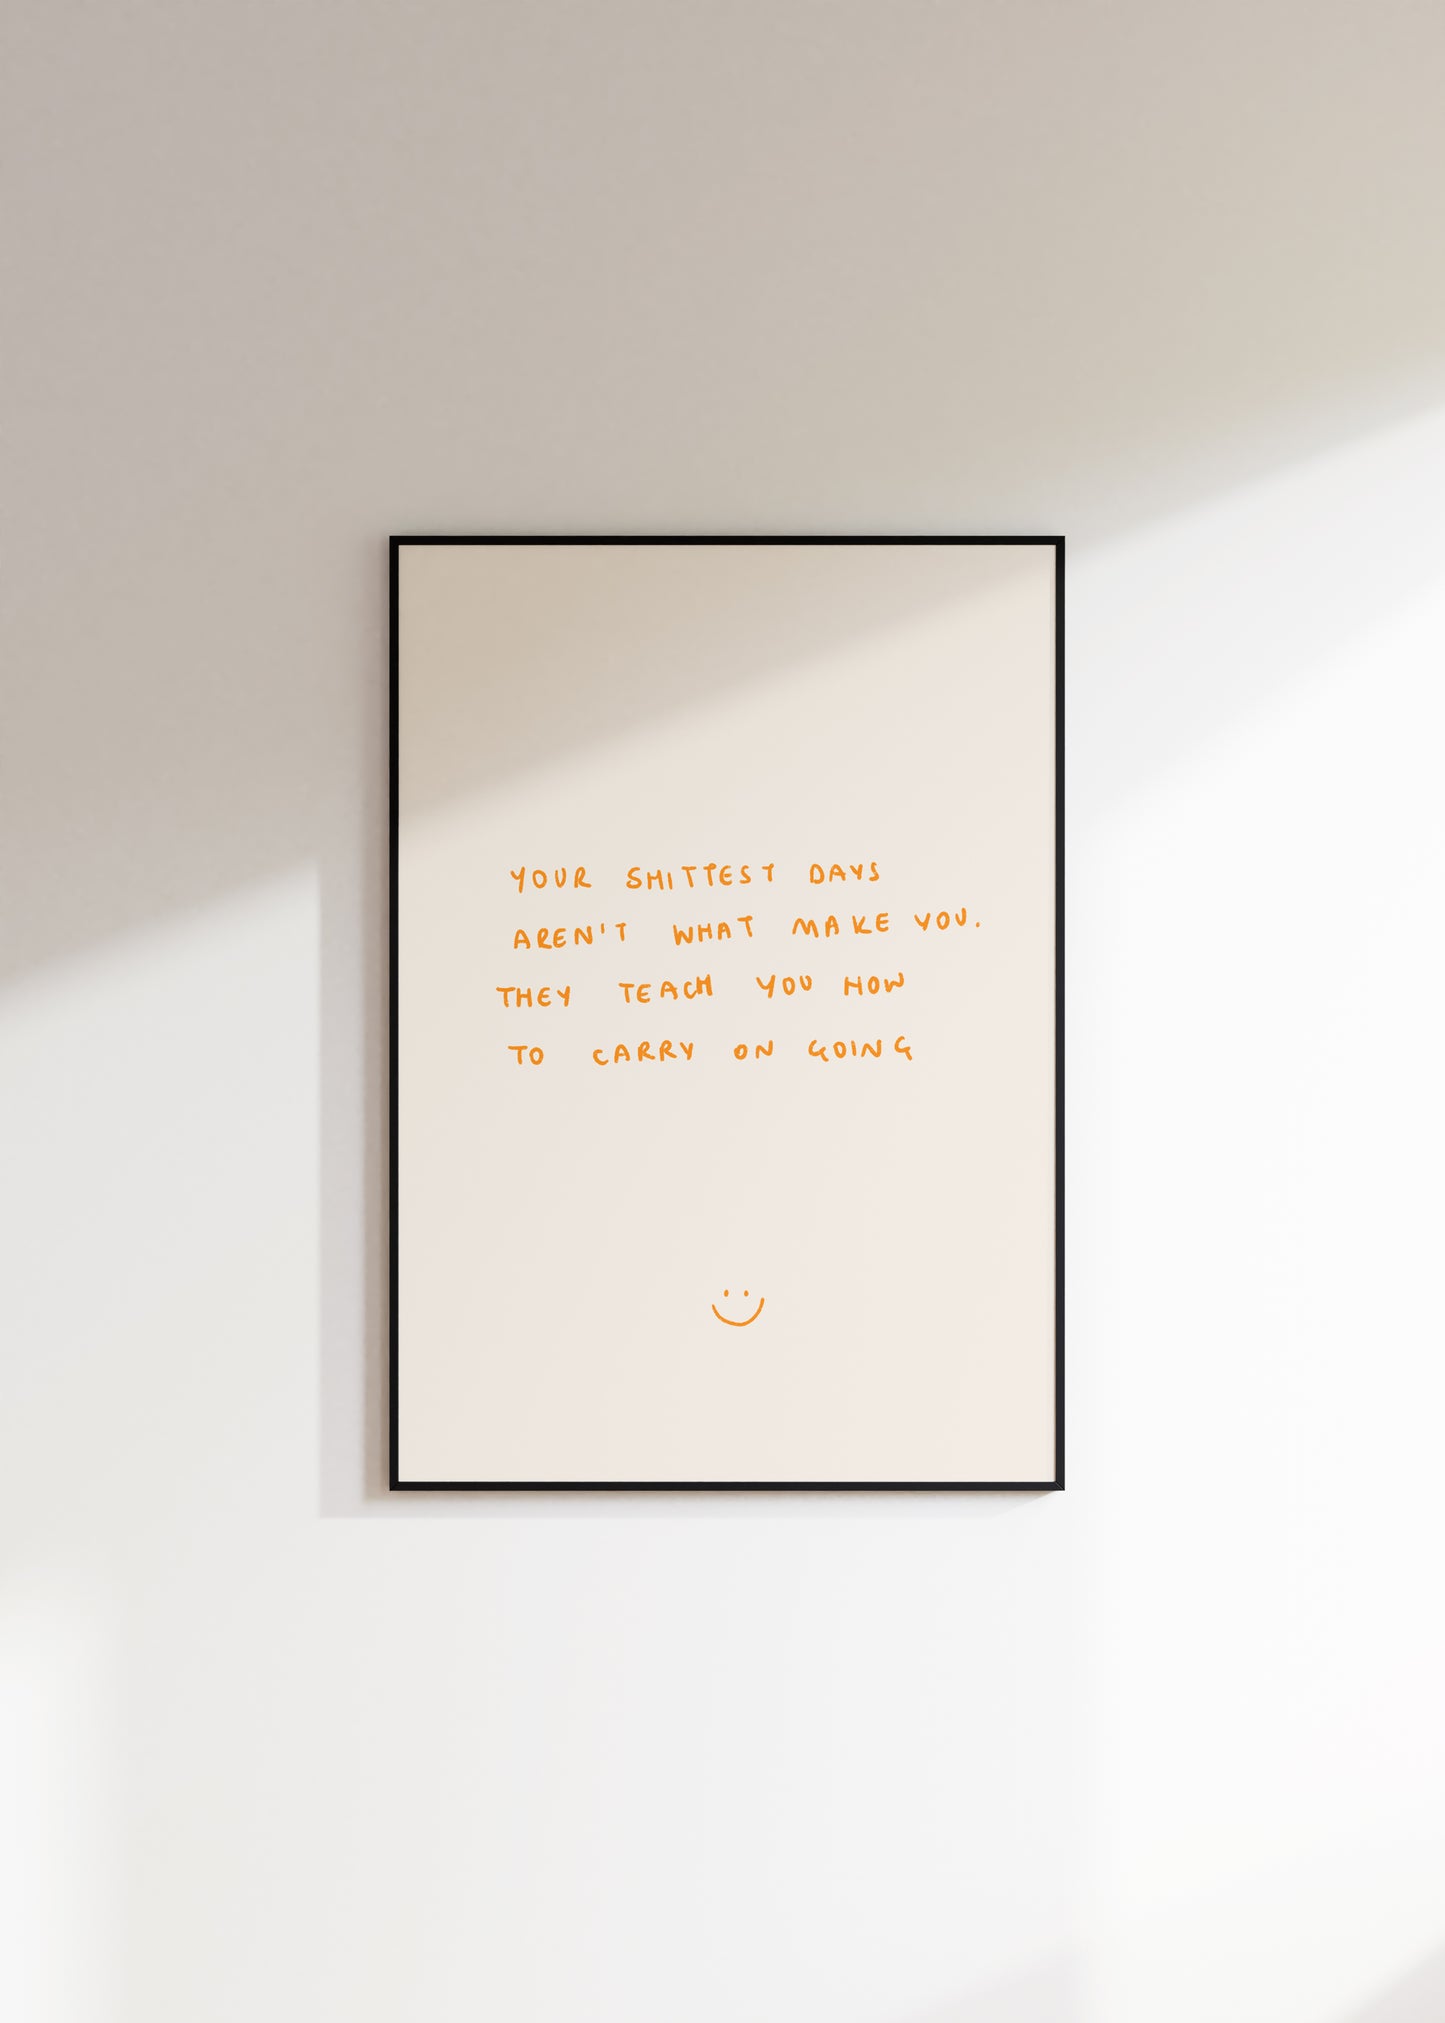 YOUR SHITTEST DAYS
AREN'T WHAT MAKE YOU.
THEY TEACH YOU HOW
TO CARRY ON GOING